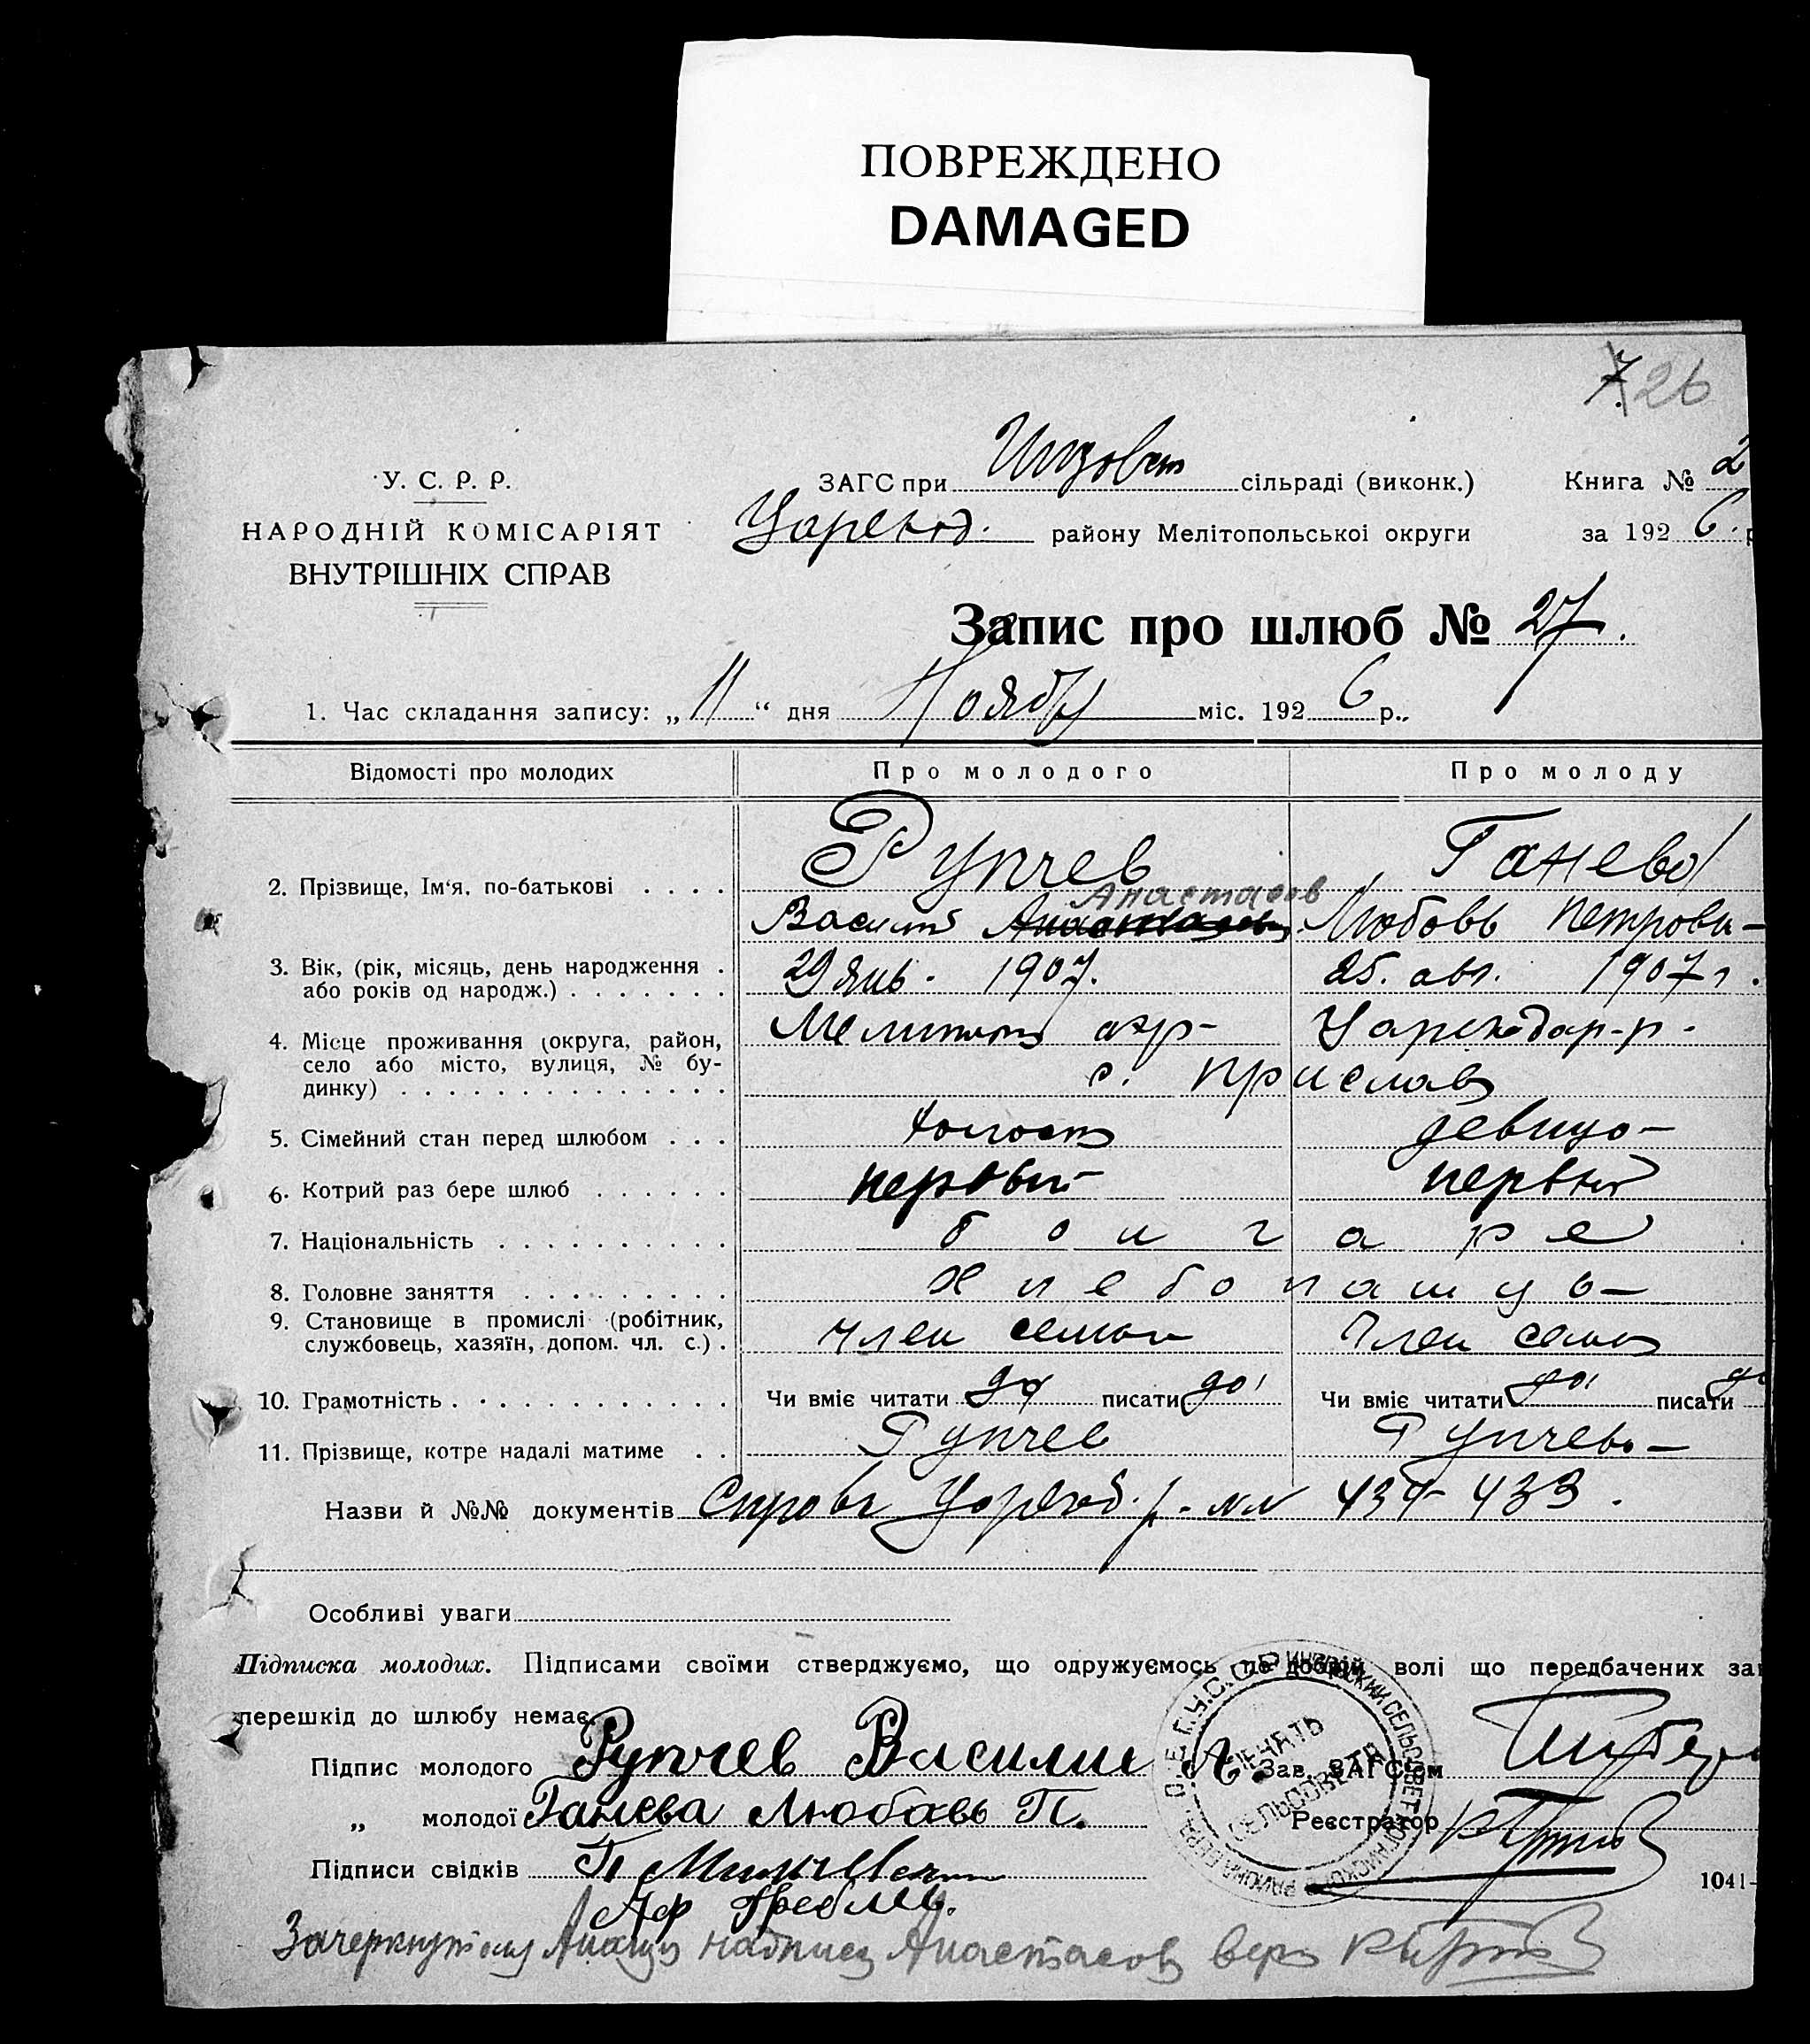 ПОВРЕЖДЕНО
DAMAGED
7 26
У. С. Р. Р.
НАРОДНІЙ КОМІСАРІЯТ
ВНУТРІШНІХ СПРАВ
ЗАГС при Инзовст сільраді (виконк.)
Царевод. району Мелітопольської округи
Книга № 2
за 1926. р
Запис про шлюб № 27.
1. Час складання запису: „11“ дня Ноябр міс. 1926 р.,
Відомості про молодих Про молодого Про молоду
2. Прізвище, Ім'я, по-батькові . . . . Рупчев Ганева
Анастасов
Васил Любовь Петровн-
3. Вік, (рік, місяць, день народження . 29 янв. 1907. 25. авг. 1907 г.
або років од народж.) . . . . . . .
4. Місце проживання (округа, район, Мелитоп окр- Цареводар-р-
село або місто, вулиця, № бу-
динку) . . . . . . . . . . . . . . с. Преслав
5. Сімейний стан перед шлюбом . . . холост девица-
6. Котрий раз бере шлюб . . . . . . первый первый
7. Національність . . . . . . . . . . болгаре
8. Головне заняття . . . . . . . . . хлебопашцы
9. Становище в промислі (робітник,
службовець, хазяїн, допом. чл. с.) . член семьи член семьи
10. Грамотність . . . . . . . . . . . . Чи вміє читати да писати да Чи вміє читати да писати да
11. Прізвище, котре надалі матиме . . Рупчев Рупчева-
Назви й №№ документів Справк Царевод. р- № № 434-433.
Особливі уваги
Підписка молодих. Підписами своїми стверджуємо, що одружуємось по добрій волі що передбачених за
перешкід до шлюбу немає.
Підпис молодого Рупчев Василий А. Зав. ЗАГС'ом
„ молодої Ганева Любовь П. Реєстратор
Підписи свідків П
Аф
О.Е.Г.У.С.С.Р. ИНЗОВСКИЙ СЕЛЬСОВЕТ НОГАЙСКОГО РАЙОНА БЕРД.
ПЕЧАТЬ СЕЛЬСОВЕТА
1041-
Зачеркнутому надпись Анастасов вер